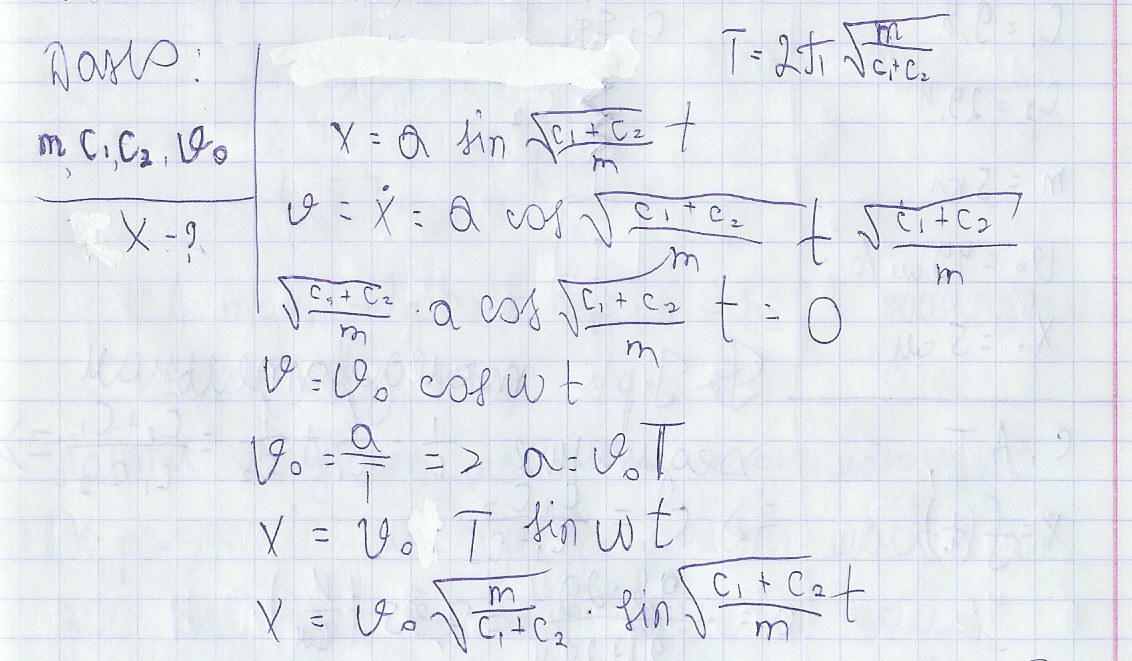 Дано:
m, c₁, c₂, v₀
x - ?
T = 2π √(m/(c₁+c₂))
x = a sin √((c₁+c₂)/m) t
v = ẋ = a cos √((c₁+c₂)/m) t √((c₁+c₂)/m)
√((c₁+c₂)/m) · a cos √((c₁+c₂)/m) t = 0
v = v₀ cos ω t
v₀ = a/T => a = v₀T
x = v₀ T sin ω t
x = v₀ √(m/(c₁+c₂)) · sin √((c₁+c₂)/m) t